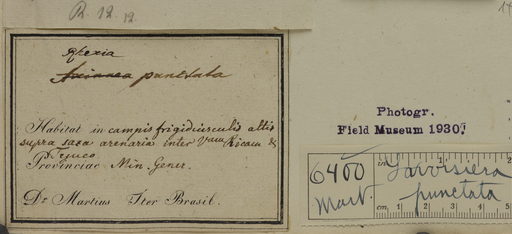 R. 12. 12.
Rhexia
Axinaea punctata
Habitat in campis frigidiusculis altis
supra saxa arenaria inter Vam Ricam &
Tejuco
Provinciae Min. Gener.
Dr. Martius Iter Brasil.
Photogr.
Field Museum 1930.
6400
Mart.
Lavoisiera
punctata
cm. 1 2 3 4 5